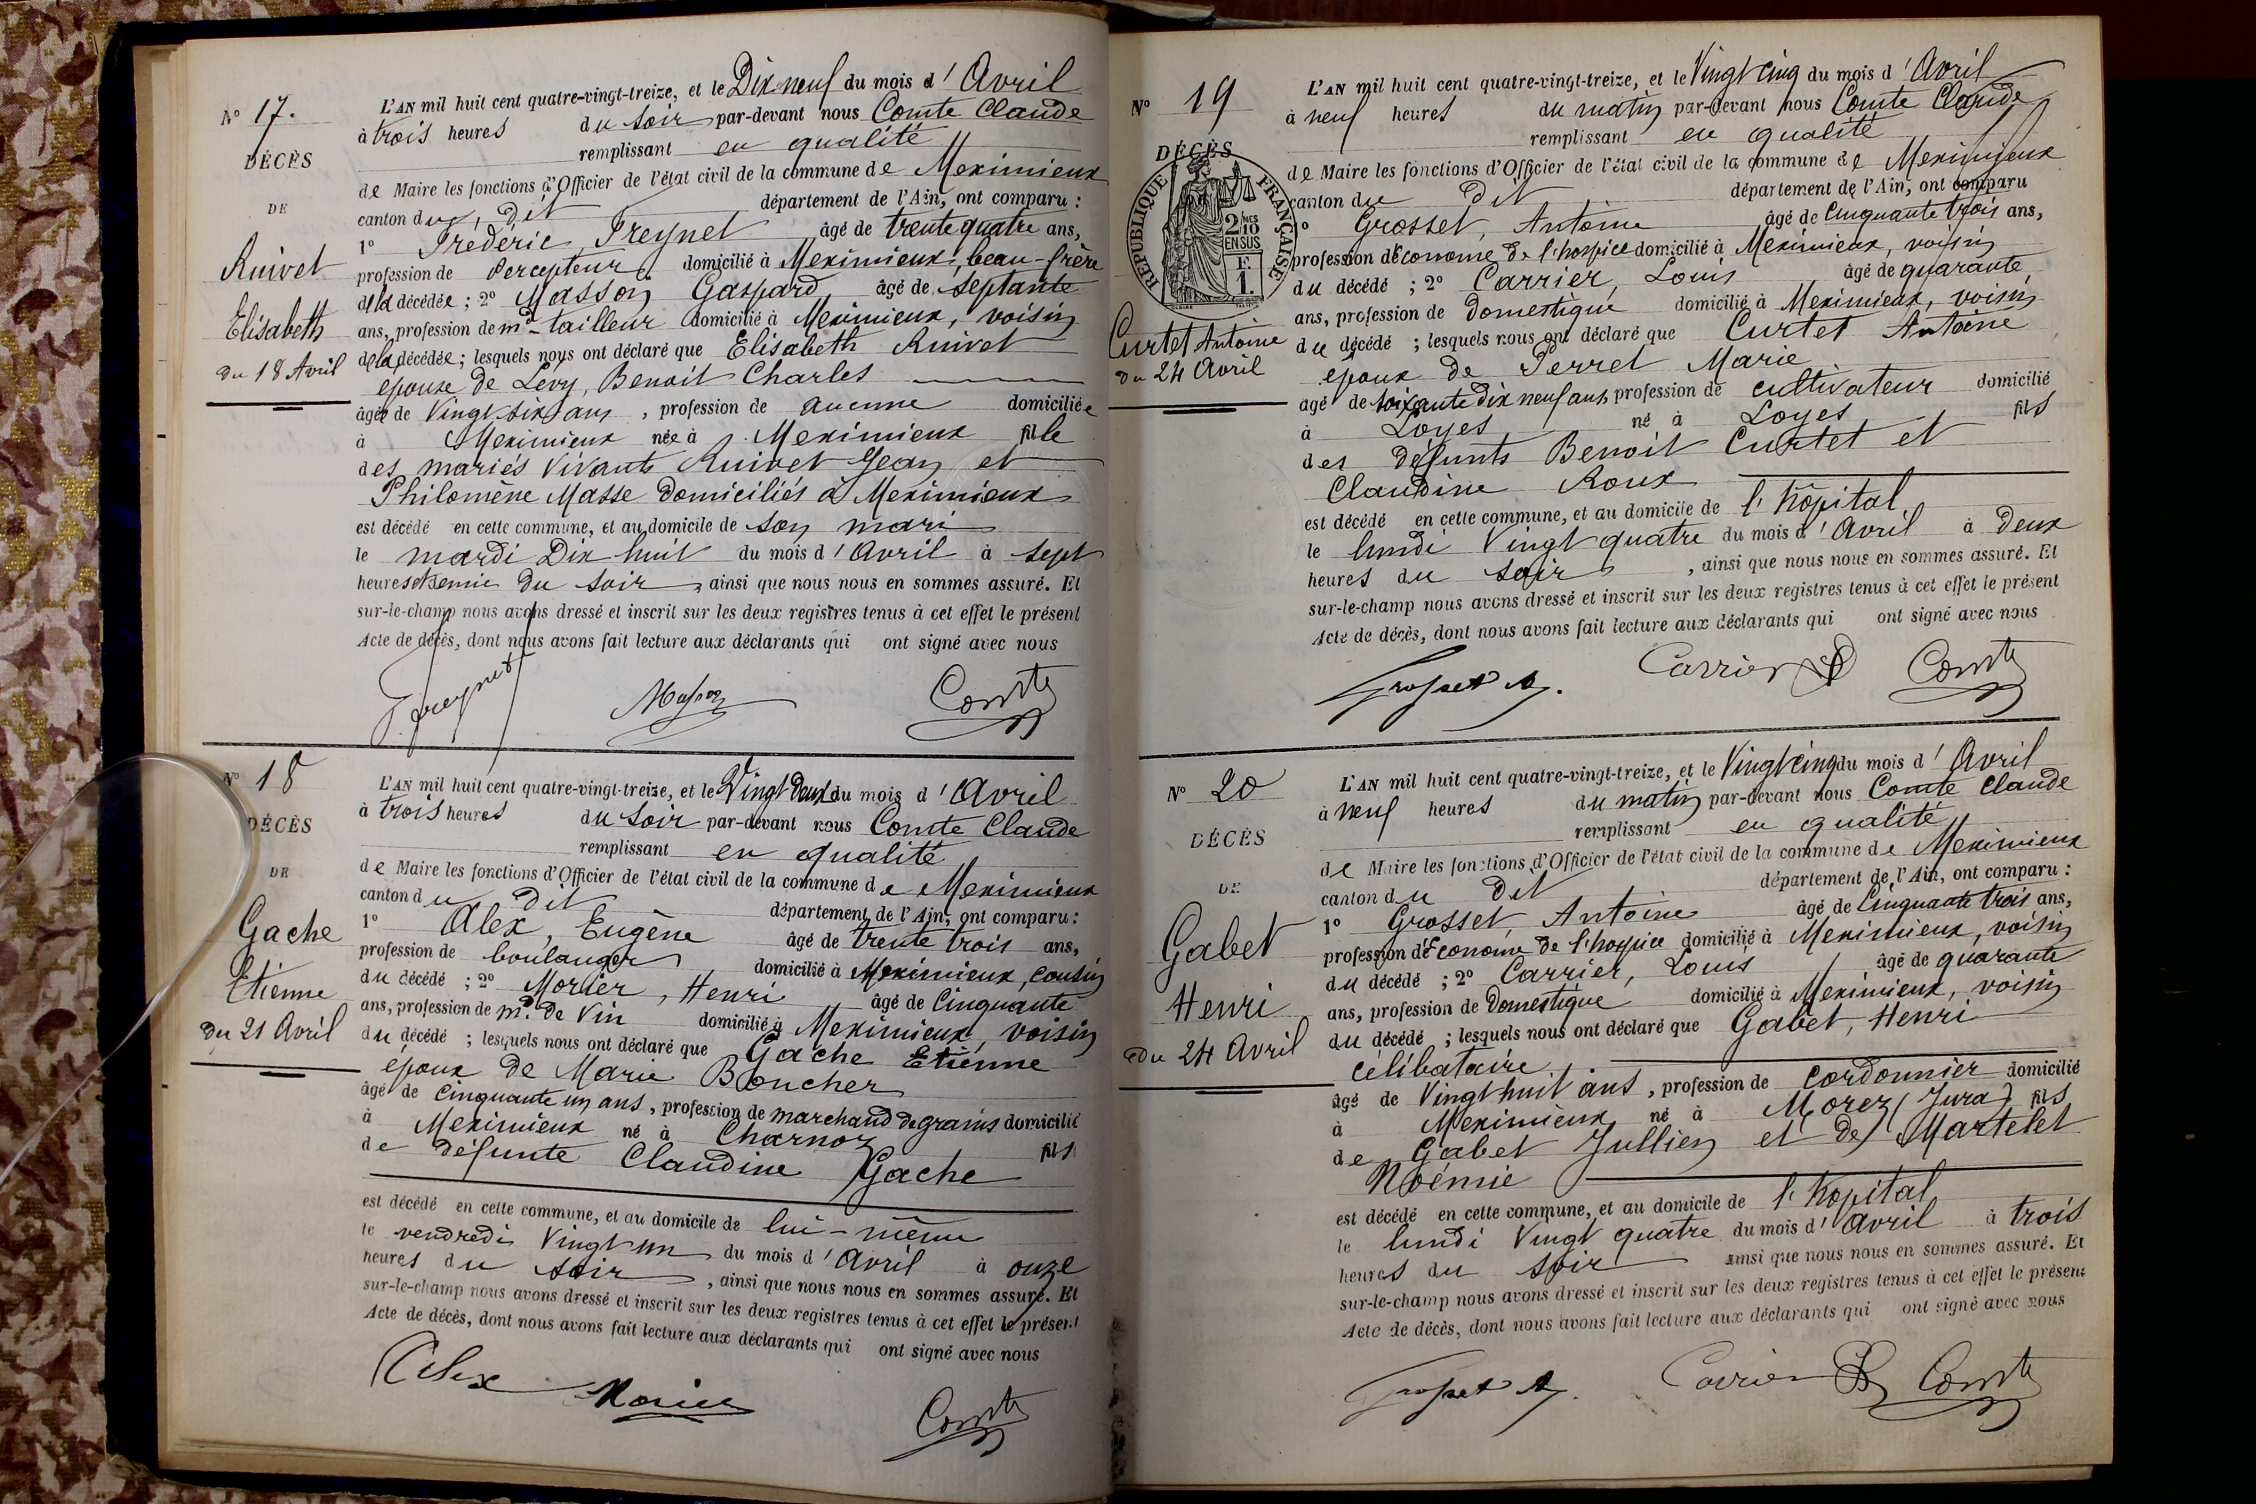 N° 17.
DÉCÈS
DE
Ruivet
Elisabeth
du 18 Avril
L'AN mil huit cent quatre-vingt-treize, et le Dix neuf du mois d'Avril
à trois heures du soir par-devant nous Comte Claude
remplissant en qualité
de Maire les fonctions d'Officier de l'état civil de la commune de Meximieux
canton du dit département de l'Ain, ont comparu :
1° Frédéric Freynet âgé de trente quatre ans,
profession de percepteur domicilié à Meximieux, beau-frère
de la décédée ; 2° Masson Gaspard âgé de septante
ans, profession de md tailleur domicilié à Meximieux, voisin
de la décédée ; lesquels nous ont déclaré que Elisabeth Ruivet
épouse de Lévy, Benoit Charles
âgée de Vingt six ans, profession de aucune domiciliée
à Meximieux née à Meximieux fille
des mariés vivants Ruivet Jean et
Philomène Masse domiciliés à Meximieux
est décédé en cette commune, et au domicile de son mari
le mardi Dix huit du mois d'Avril à sept
heures et demie du soir, ainsi que nous nous en sommes assuré. Et
sur-le-champ nous avons dressé et inscrit sur les deux registres tenus à cet effet le présent
Acte de décès, dont nous avons fait lecture aux déclarants qui ont signé avec nous
F. Freynet Masson Comte
N° 18
DÉCÈS
DE
Gache
Etienne
du 21 Avril
L'AN mil huit cent quatre-vingt-treize, et le Vingt Deux du mois d'Avril
à trois heures du soir par-devant nous Comte Claude
remplissant en qualité
de Maire les fonctions d'Officier de l'état civil de la commune de Meximieux
canton du dit département de l'Ain, ont comparu :
1° Alex, Eugène âgé de trente trois ans,
profession de boulanger domicilié à Meximieux, cousin
du décédé ; 2° Morier, Henri âgé de Cinquante
ans, profession de md. de Vin domicilié à Meximieux, voisin
du décédé ; lesquels nous ont déclaré que Gache Etienne
époux de Marie Boucher
âgé de Cinquante un ans, profession de marchand de grains domicilié
à Meximieux né à Charnoz fils
de défunte Claudine Gache
est décédé en cette commune, et au domicile de lui-même
le vendredi Vingt un du mois d'Avril à onze
heures du soir, ainsi que nous nous en sommes assuré. Et
sur-le-champ nous avons dressé et inscrit sur les deux registres tenus à cet effet le présent
Acte de décès, dont nous avons fait lecture aux déclarants qui ont signé avec nous
Alex Morier Comte
N° 19
DÉCÈS
RÉPUBLIQUE FRANÇAISE
2/10 MES
EN SUS
F.
1.
Curtet Antoine
du 24 Avril
L'AN mil huit cent quatre-vingt-treize, et le Vingt Cinq du mois d'Avril
à neuf heures du matin par-devant nous Comte Claude
remplissant en qualité
de Maire les fonctions d'Officier de l'état civil de la commune de Meximieux
canton du dit département de l'Ain, ont comparu
1° Grosset, Antoine âgé de Cinquante trois ans,
profession d'Econome de l'hospice domicilié à Meximieux, voisin
du décédé ; 2° Carrier, Louis âgé de quarante
ans, profession de Domestique domicilié à Meximieux, voisin
du décédé ; lesquels nous ont déclaré que Curtet Antoine
époux de Perret Marie
âgé de soixante dix neuf ans, profession de cultivateur domicilié
à Loyes né à Loyes fils
des défunts Benoit Curtet et
Claudine Roux
est décédé en cette commune, et au domicile de l'hôpital
le lundi Vingt quatre du mois d'Avril à Deux
heures du soir, ainsi que nous nous en sommes assuré. Et
sur-le-champ nous avons dressé et inscrit sur les deux registres tenus à cet effet le présent
Acte de décès, dont nous avons fait lecture aux déclarants qui ont signé avec nous
Grosset A. Carrier Comte
N° 20
DÉCÈS
DE
Gabet
Henri
du 24 Avril
L'AN mil huit cent quatre-vingt-treize, et le Vingt Cinq du mois d'Avril
à neuf heures du matin par-devant nous Comte Claude
remplissant en qualité
de Maire les fonctions d'Officier de l'état civil de la commune de Meximieux
canton du dit département de l'Ain, ont comparu :
1° Grosset, Antoine âgé de Cinquante trois ans,
profession d'Econome de l'hospice domicilié à Meximieux, voisin
du décédé ; 2° Carrier, Louis âgé de quarante
ans, profession de Domestique domicilié à Meximieux, voisin
du décédé ; lesquels nous ont déclaré que Gabet, Henri
célibataire
âgé de Vingt huit ans, profession de cordonnier domicilié
à Meximieux né à Morez (Jura) fils
de Gabet Jullien et de Martelet
Noémie
est décédé en cette commune, et au domicile de l'hôpital
le lundi Vingt quatre du mois d'Avril à trois
heures du soir ainsi que nous nous en sommes assuré. Et
sur-le-champ nous avons dressé et inscrit sur les deux registres tenus à cet effet le présent
Acte de décès, dont nous avons fait lecture aux déclarants qui ont signé avec nous
Grosset A. Carrier Comte